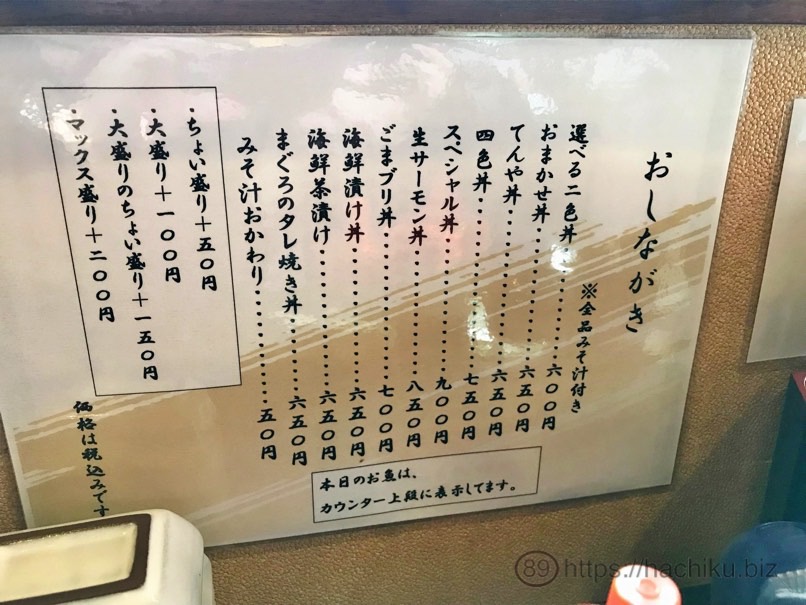 おしながき
※全品みそ汁付き
選べる二色丼・・・・・・・六〇〇円
おまかせ丼・・・・・・・六五〇円
てんや丼・・・・・・・・六五〇円
四色丼・・・・・・・・・七五〇円
スペシャル丼・・・・・・・九〇〇円
生サーモン丼・・・・・・・八五〇円
ごまブリ丼・・・・・・・・七〇〇円
海鮮漬け丼・・・・・・・・六五〇円
海鮮茶漬け・・・・・・・・六五〇円
まぐろのタレ焼き丼・・・・六五〇円
みそ汁おかわり・・・・・・・五〇円
・ちょい盛り+五〇円
・大盛り+一〇〇円
・大盛りのちょい盛り+一五〇円
・マックス盛り+二〇〇円
価格は税込みです
本日のお魚は、
カウンター上段に表示してます。
89 https://hachiku.biz